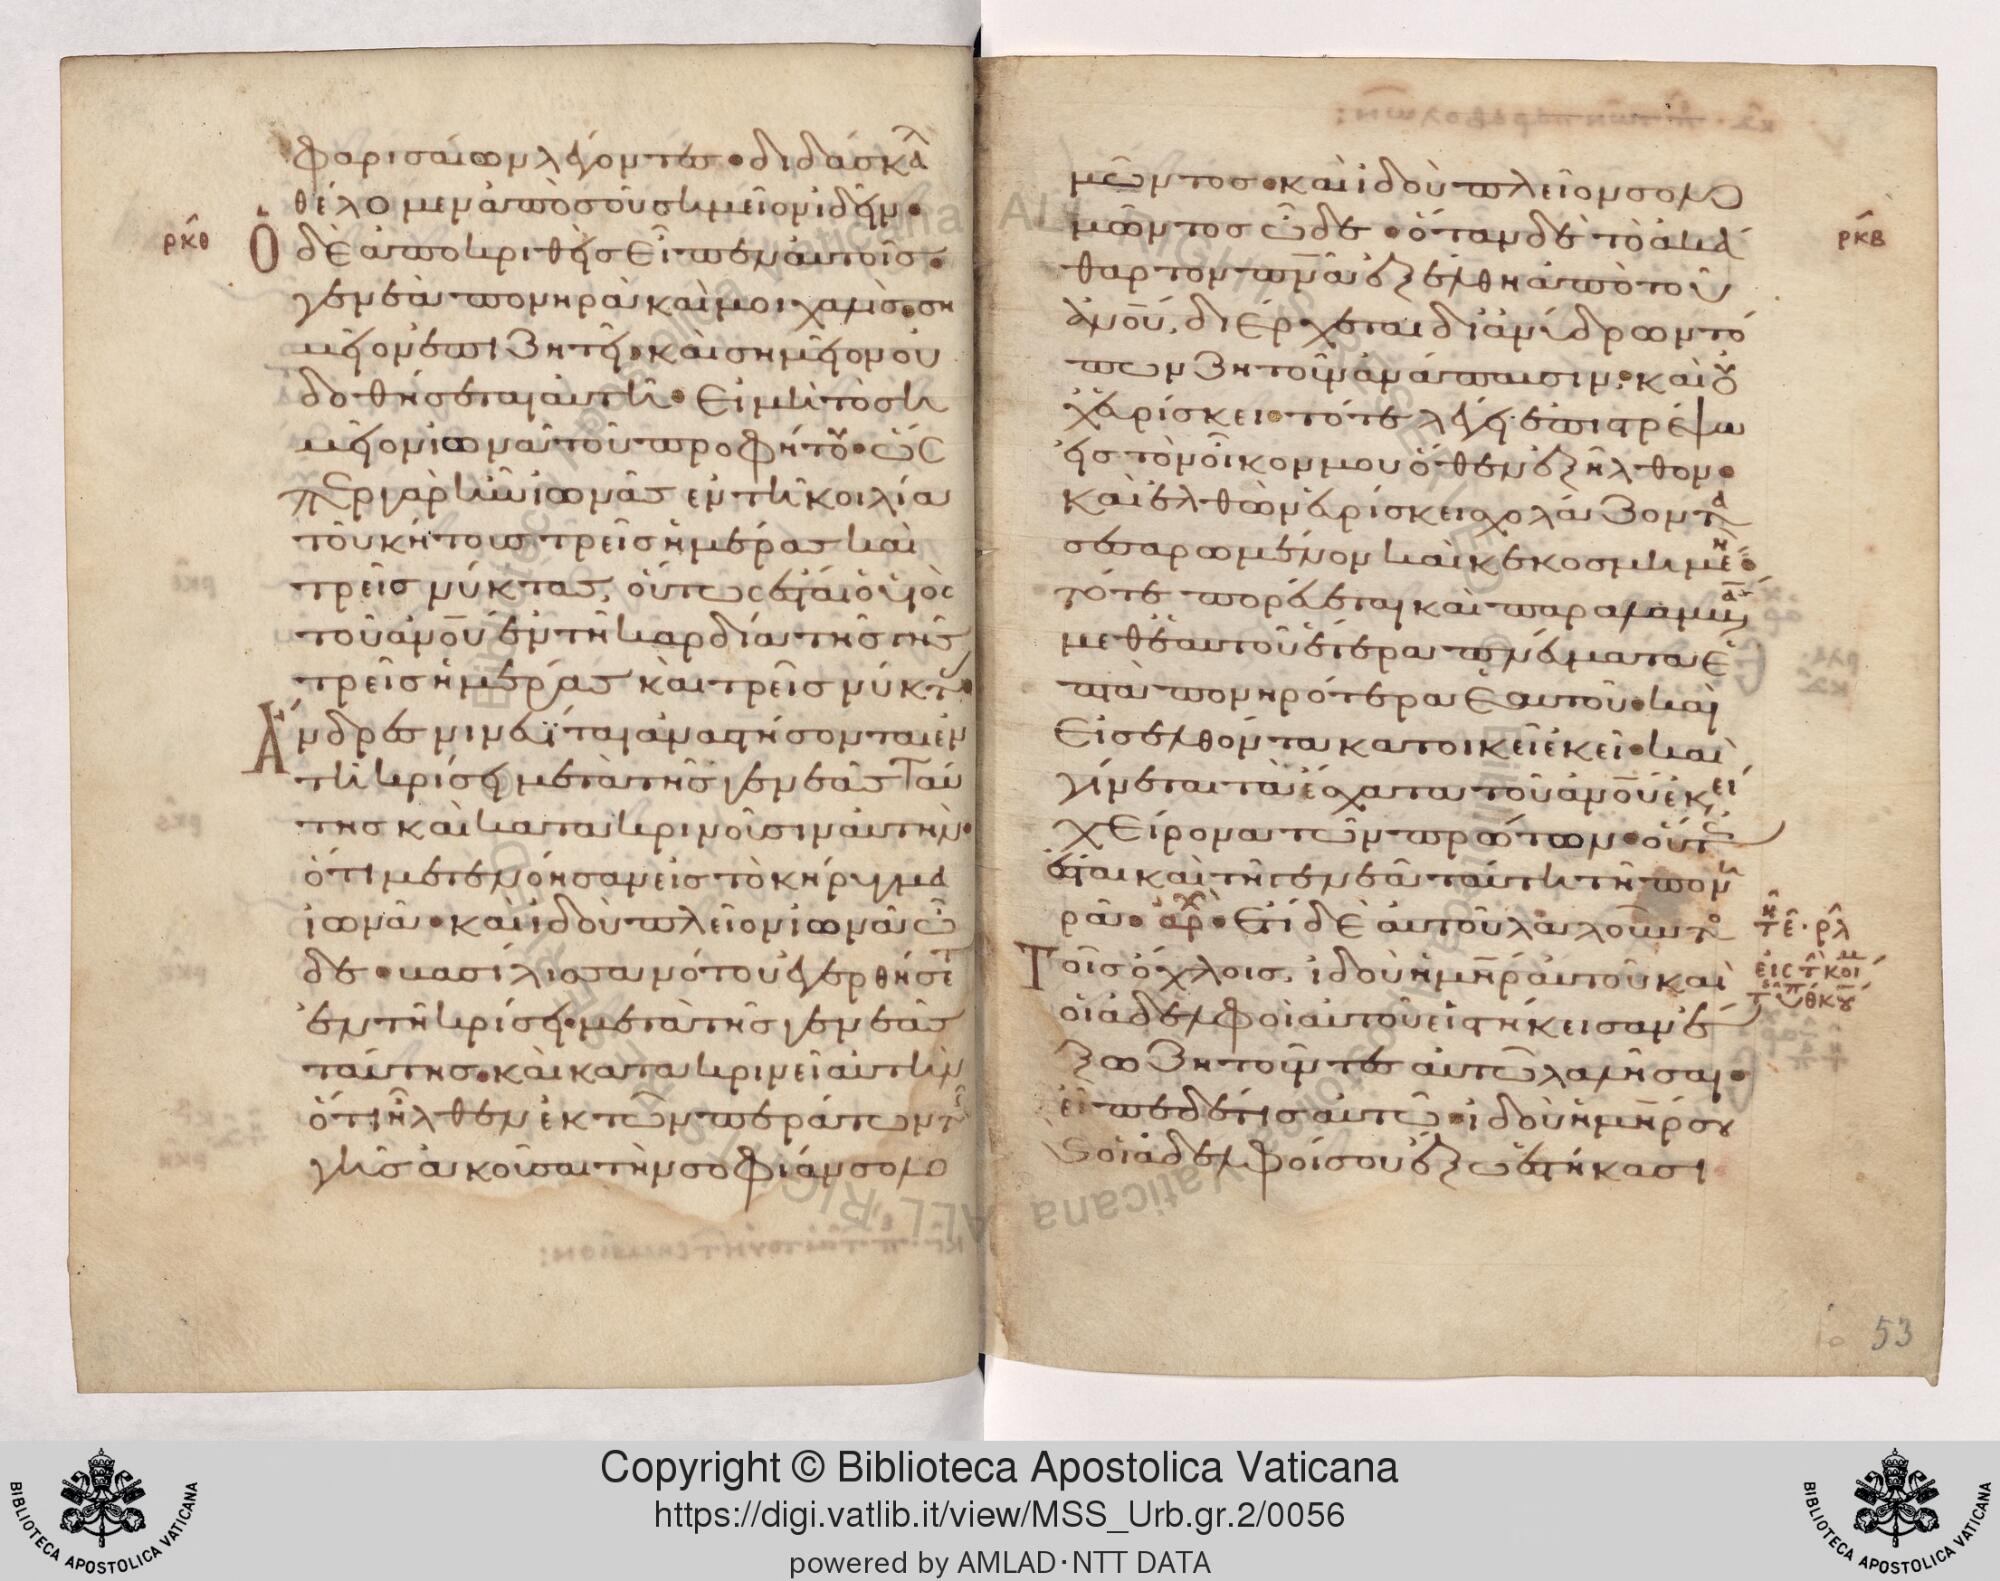 φαρισαίων λέγοντες· διδάσκαλ
θέλομεν ἀπὸ σοῦ σημεῖον ἰδεῖν·
ρκθ
Ὁ δὲ ἀποκριθεὶς εἶπεν αὐτοῖς·
γενεὰ πονηρὰ καὶ μοιχαλὶς ση
μεῖον ἐπιζητεῖ· καὶ σημεῖον οὐ
δοθήσεται αὐτῆ· εἰ μὴ τὸ ση
μεῖον ἰωνᾶ τοῦ προφήτου· ὥσ
περ γὰρ ἦν ἰωνᾶς ἐν τῆ κοιλία
τοῦ κήτους τρεῖς ἡμέρας καὶ
τρεῖς νύκτας, οὕτως ἔσται ὁ υἱὸς
τοῦ ἀνοῦ ἐν τῆ καρδία τῆς γῆς
τρεῖς ἡμέρας καὶ τρεῖς νύκτ·
Ἄνδρες νινευῖται ἀναστήσονται ἐν
τῆ κρίσει μετὰ τῆς γενεᾶς ταύ
της καὶ κατακρινοῦσιν αὐτήν·
ὅτι μετενόησαν εἰς τὸ κήρυγμα
ἰωνᾶ· καὶ ἰδοὺ πλεῖον ἰωνᾶ ὧ
δε· βασίλισσα νότου ἐγερθήσετ
ἐν τῆ κρίσει μετὰ τῆς γενεᾶς
ταύτης· καὶ κατακρινεῖ αὐτήν
ὅτι ἦλθεν ἐκ τῶν περάτων τ
γῆς ἀκοῦσαι τὴν σοφίαν σολο
μῶντος· καὶ ἰδοὺ πλεῖον σολο
μῶντος ὧδε· ὅταν δὲ τὸ ἀκά
ρκβ
θαρτον πνα ἐξέλθη ἀπὸ τοῦ
ἀνοῦ, διέρχεται δι ἀνύδρων τό
πων ζητοῦν ἀνάπαυσιν, καὶ οὐ
χ εὑρίσκει· τότε λέγει· ἐπιστρέψω
εἰς τὸν οἶκον μου ὅθεν ἐξῆλθον·
καὶ ἐλθὸν εὑρίσκει σχολάζοντα
σεσαρωμένον καὶ κεκοσμημέν·
τότε πορεύεται καὶ παραλαμβάν
μεθ ἑαυτοῦ ἕτερα πνεύματα ἑ
πτὰ πονηρότερα ἑαυτοῦ· καὶ
εἰσελθόντα κατοικεῖ ἐκεῖ· καὶ
γίνεται τὰ ἔσχατα τοῦ ἀνοῦ ἐκεί
χείρονα τῶν πρώτων· οὕτ
ἔσται καὶ τῆ γενεᾶ ταύτη τῆ πονη
ρᾶ· ἀρχ· ἔτι δὲ αὐτοῦ λαλοῦντος
τε· ρλ
Τοῖς ὄχλοις, ἰδοὺ ἡ μηρ αὐτοῦ καὶ
εἰς τ κοι
οἱ ἀδελφοὶ αὐτοῦ εἱστήκεισαν ἔ
ξω ζητοῦντες αὐτῶ λαλῆσαι·
εἶπε δέ τις αὐτῶ· ἰδοὺ ἡ μηρ σου
καὶ οἱ ἀδελφοί σου ἔξω ἑστήκασι
53
Copyright © Biblioteca Apostolica Vaticana
https://digi.vatlib.it/view/MSS_Urb.gr.2/0056
powered by AMLAD·NTT DATA
BIBLIOTECA APOSTOLICA VATICANA
BIBLIOTECA APOSTOLICA VATICANA